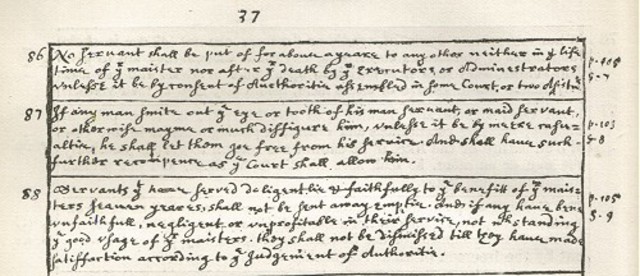 37
86 No servant shall be put of for above a yeare to any other neither in yͤ life p. 105
time of yͤ maister nor after yͤ death by yͤ Executors or Administrators § - 7
vnlesse it be by consent of Authoritie assembled in some Court, or two Assistants
87 If any man smite out yͤ eye or tooth of his man servant, or maid servant,
or otherwise mayme or much disfigure him, vnlesse it be by meere casu- p. 103
altie, he shall let them goe free from his service And shall have such § 8
further recompence as yͤ Court shall allow him.
88 Servants yͭ have served deligentlie & faithfully to yͤ benefitt of yͤ mais- p. 105
ters seaven yeares, shall not be sent away emptie. And if any have bene § . 9
vnfaithfull, negligent or vnprofitable in their service, not withstanding
yͤ good vsage of yͤ maisters. they shall not be dismissed till they have made
satisfaction according to yͤ Judgement of Authoritie.